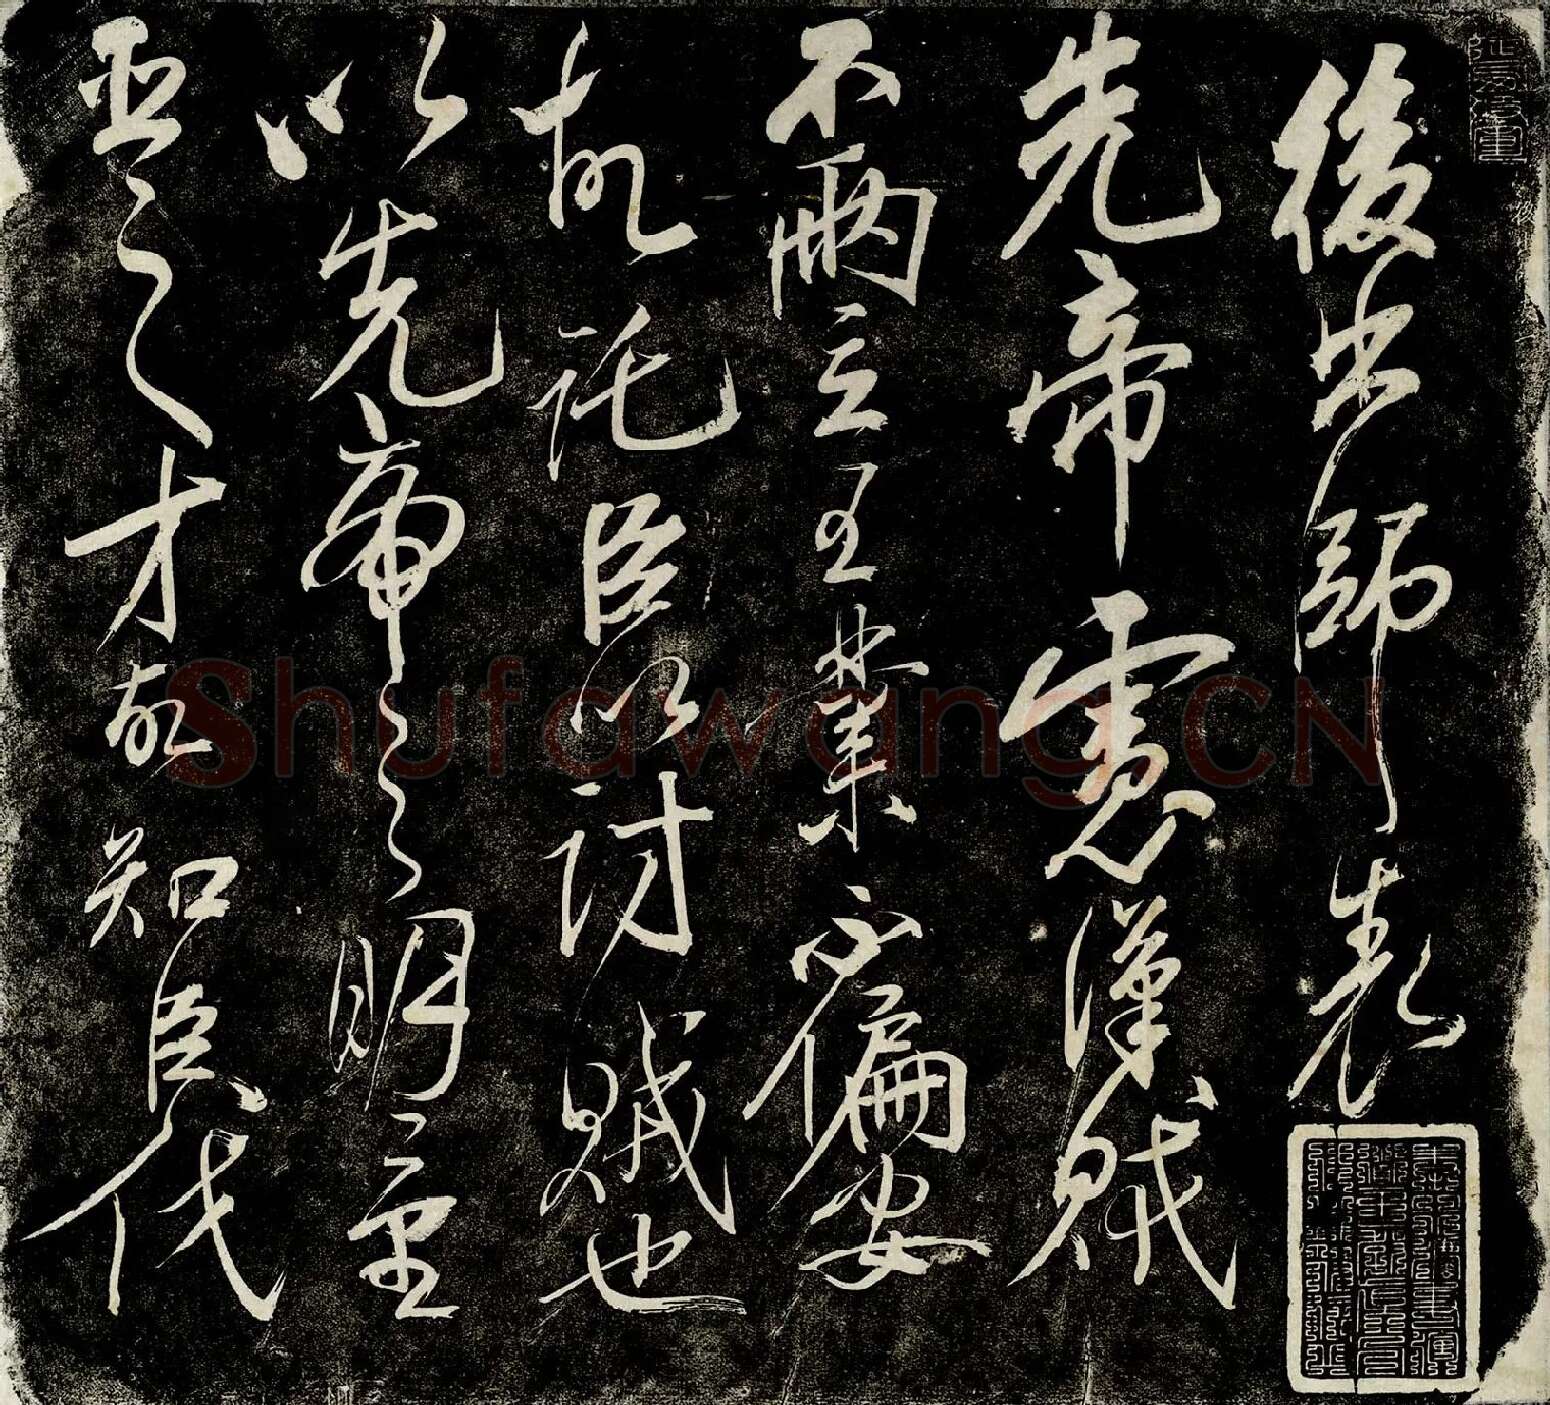 後出師表
先帝慮漢賊
不兩立王業不偏安
故託臣以討賊也
以先帝之明量
臣之才故知臣伐
Shufawang.CN